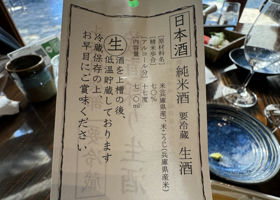 日本酒 純米酒 要冷蔵 生酒
【原材料名】 米(兵庫県産)、米こうじ(兵庫県産米)
【精米歩合】 七〇%
【アルコール分】 十七度
【内容量】 七二〇ml
生 酒を上槽の後、
低温貯蔵しております
冷蔵保存の上、
お早目にご賞味ください